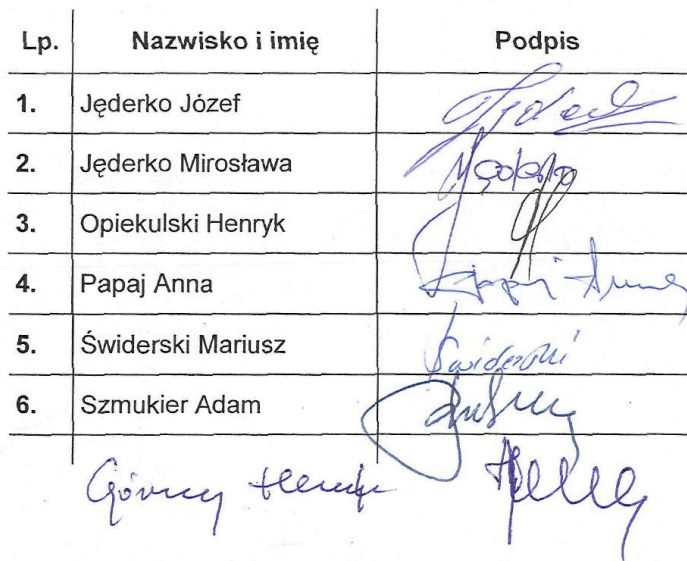 Lp. Nazwisko i imię Podpis
1. Jęderko Józef
2. Jęderko Mirosława
3. Opiekulski Henryk
4. Papaj Anna Papaj Anna
5. Świderski Mariusz Świderski
6. Szmukier Adam
Górny Henryk